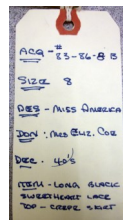 ACQ-#
83-86-8 B
SIZE 8
DES - MISS AMERICA
DON: MRS ELIZ. COE
DEC. 40's
ITEM - LONG BLACK
SWEETHEART LACE
TOP - CREPE SKIRT